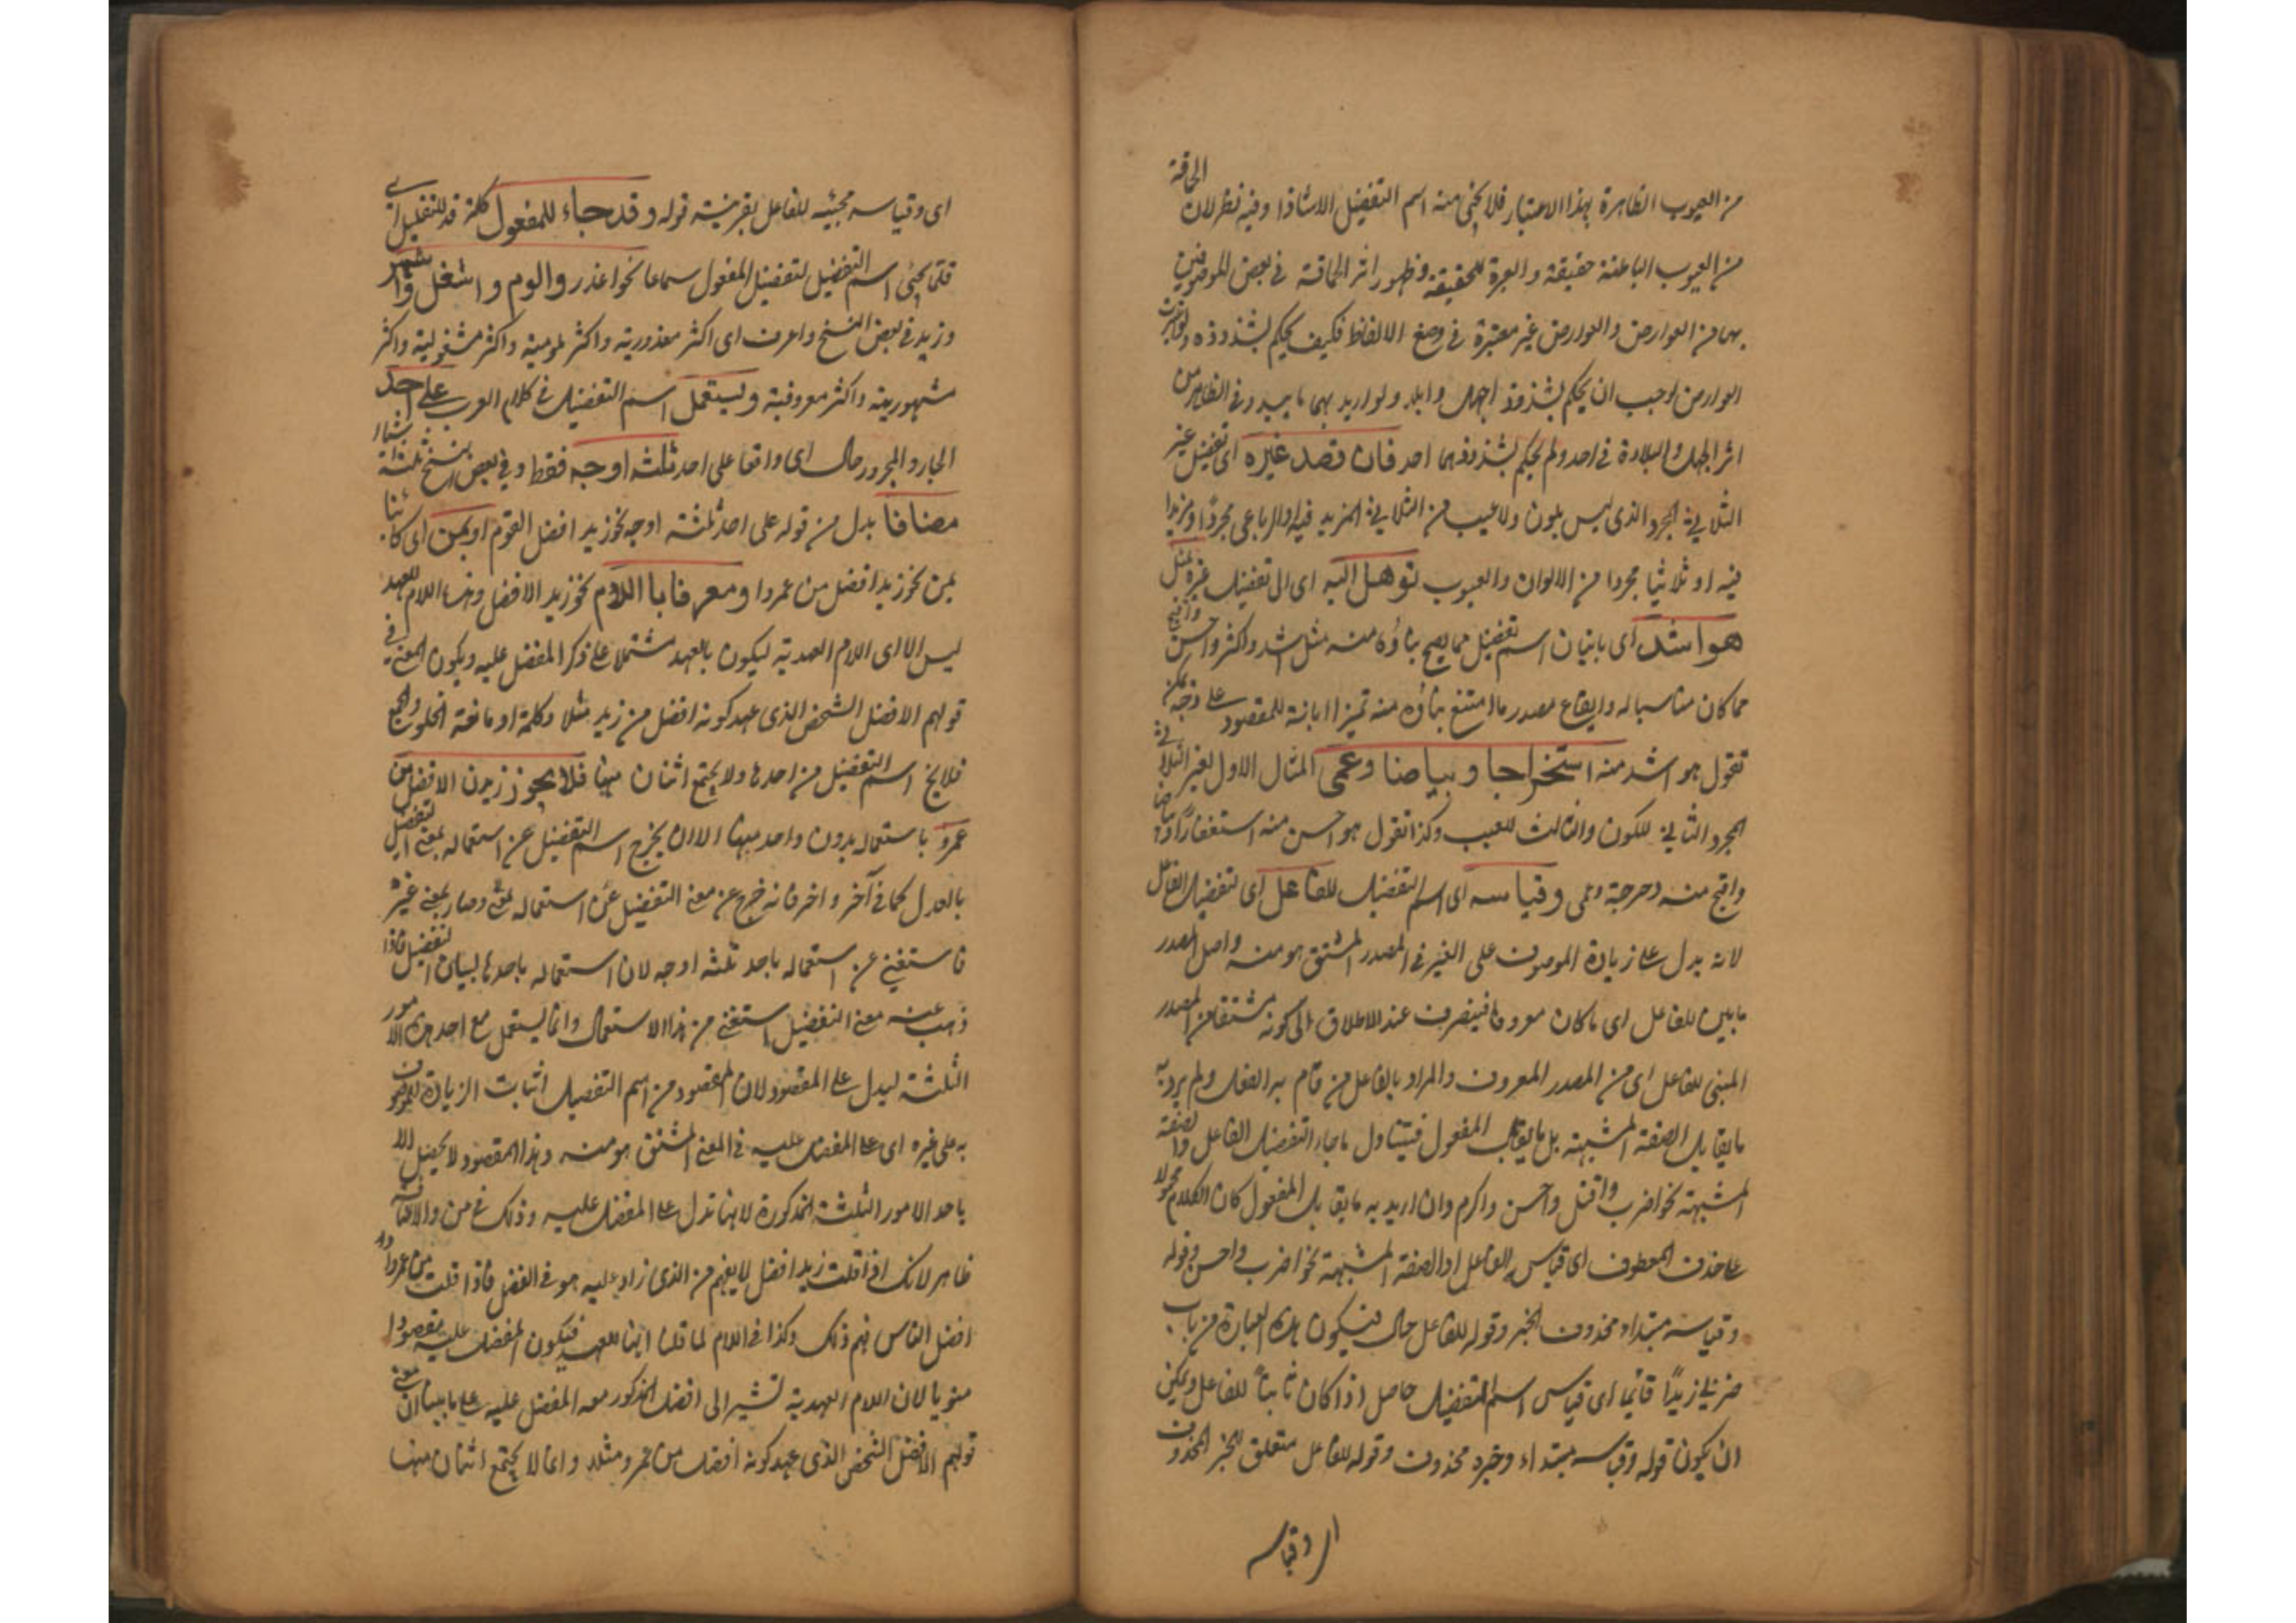 من العيوب الظاهرة بهذا الاعتبار فلا يجئ منه اسم التفضيل الا شاذا وفيه نظر لان الحماقة
من العيوب الباطنة حقيقة والعبرة للحقيقة وظهور اثر الحماقة في بعض الموصوفين
بها من العوارض والعوارض غير معتبرة في وضع الالفاظ فكيف يحكم بشذوذه ولو اعتبرت
العوارض لوجب ان يحكم بشذوذ اجهل وابلد ولو اريد بهما ما يبدو في الظاهر من
اثر الجهل والبلادة في احد ولم يحكم بشذوذهما احد فان قصد غيره اى تفضيل غير
الثلاثي المجرد الذى ليس بلون ولا عيب من الثلاثي المزيد فيه والرباعي مجردا ومزيدا
فيه او ثلاثيا مجردا من الالوان والعيوب توصل اليه اى الى تفضيل غيره مثل
هو اشد اى باتيان اسم تفضيل مما يصح بناؤه منه مثل اشد واكثر واحسن واقبح
مما كان مناسبا له وايقاع مصدر ما امتنع بناؤه منه تميزا ابانة للمقصود على وجه يمكن
تقول هو اشد منه استخراجا وبياضا وعمى المثال الاول لغير الثلاثي
المجرد الثاني للكون والثالث للعيب وكذا تقول هو احسن منه استغفارا وبياضا
واقبح منه دحرجة وعمى وقياسه اى اسم التفضيل للفاعل اى لتفضيل الفاعل
لانه يدل على زيادة الموصوف على الغير في المصدر المشتق هو منه واصل المصدر
ما بين للفاعل اى ما كان معروفا فينصرف عند الاطلاق الى كونه مشتقا من المصدر
المبنى للفاعل اى من المصدر المعروف والمراد بالفاعل من قام به الفعل ولم يرد به
ما يقابل الصفة المشبهة بل ما يقابل المفعول فيتناول ما جاء لتفضيل الفاعل والصفة
المشبهة نحو اضرب واقتل واحسن واكرم وان اريد به ما يقابل المفعول كان الكلام محمولا
على حذف المعطوف اى قياس الفاعل او الصفة المشبهة نحو اضرب واحسن وقوله
وقياسه مبتداء محذوف الخبر وقوله للفاعل حال فيكون هذه العبارة من باب
ضربي زيدا قائما اى قياس اسم التفضيل حاصل اذا كان ثابتا للفاعل ويمكن
ان يكون قوله وقياسه مبتداء وخبره محذوف وقوله للفاعل متعلق الخبر المحذوف
اى وقياسه
اى وقياسه مجيئه للفاعل بقرينة قوله وقد جاء للمفعول كلمة قد للتقليل اى
قلما يجئ اسم التفضيل لتفضيل المفعول سماعا نحو اعذر والوم واشغل واشهر
وزيد في بعض النسخ واعرف اى اكثر معذورية واكثر لومية واكثر مشغولية واكثر
مشهورية واكثر معروفية ويستعمل اسم التفضيل في كلام العرب على احد
الجار والمجرور حال اى واقعا على احد ثلثة اوجه فقط وفي بعض النسخ ثلثة اشياء
مضافا بدل من قوله على احد ثلثة اوجه نحو زيد افضل القوم او بمن اى كائنا
بمن نحو زيد افضل من عمرو او معرفا باللام نحو زيد الافضل وهذه اللام للعهد
ليس الا اى اللام العهدية ليكون بالعهد مشتملا على ذكر المفضل عليه ويكون المعنى في
قولهم الافضل الشخص الذى عهد كونه افضل من زيد مثلا وكلمة او مانعة الخلو والجمع
فلا يخ اسم التفضيل من احدها ولا يجتمع اثنان منها فلا يجوز زيدن الافضل من
عمرو باستعماله بدون واحد منها الا ان يخرج اسم التفضيل عن استعماله بمعنى التفضيل
بالعدل كما في آخر واخر فانه خرج عن معنى التفضيل عن استعماله بمعنى وصار بمعنى غير
فاستغنى عن استعماله باحد ثلثة اوجه لان استعماله باحدها لبيان التفضيل فاذا
ذهب عنه معنى التفضيل استغنى من هذا الاستعمال وانما يستعمل مع احد هذه الامور
الثلثة ليدل على المقصود لان المقصود من اسم التفضيل اثبات الزيادة للموصوف
به على غيره اى على المفضل عليه في المعنى المشتق هو منه وهذا المقصود لا يحصل الا
باحد الامور الثلثة المذكورة لانها تدل على المفضل عليه وذلك في من والاضافة
ظاهر لانك اذا قلت زيد افضل لا يفهم من الذى زاد عليه هو في الفضل فاذا قلت من عمرو او
افضل الناس فهم ذلك وكذا في اللام لما قلنا انها للعهد فيكون المفضل عليه مقصودا
منويا لان اللام العهدية تشير الى افضل المذكور معه المفضل عليه على ما بينا ان معنى
قولهم الافضل الشخص الذى عهد كونه افضل من عمرو مثلا وانما لا يجتمع اثنان منها